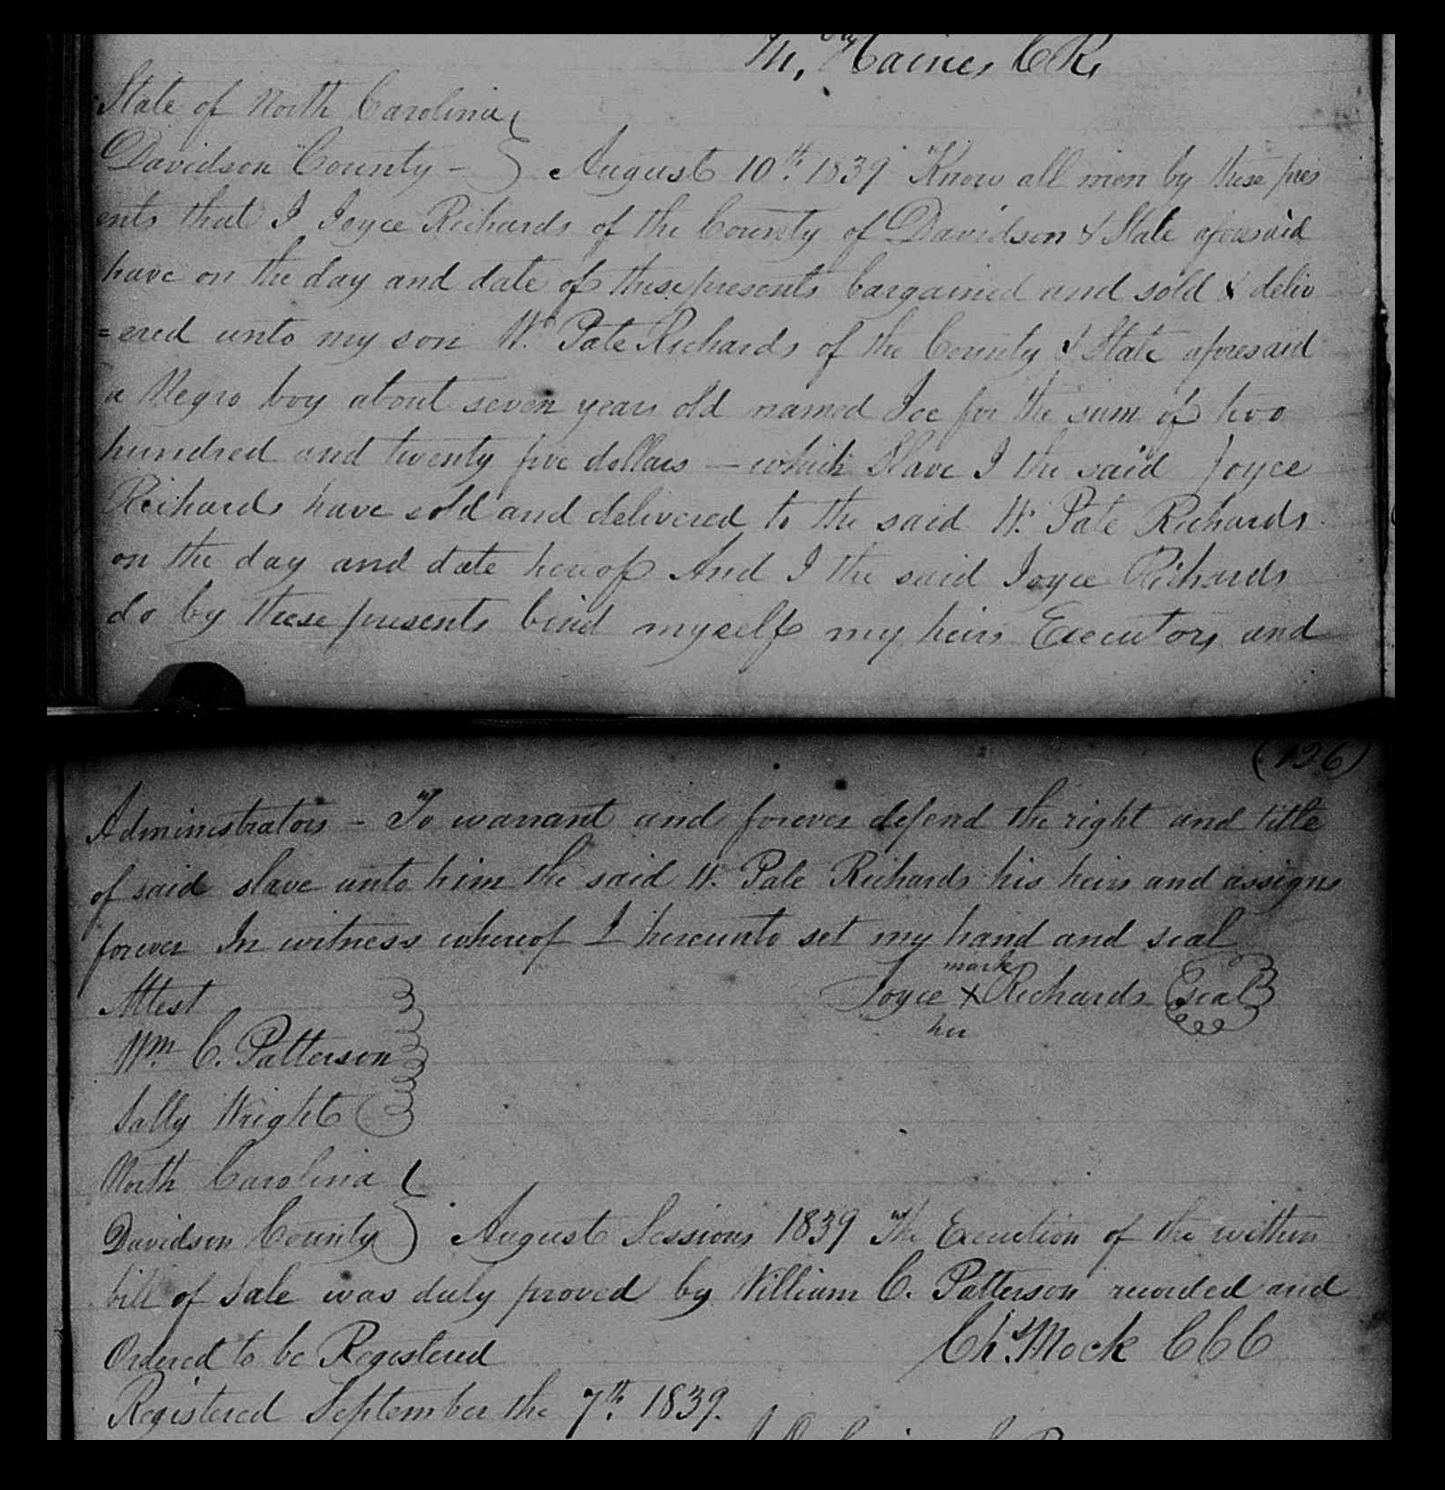 M. Haines C R,
State of North Carolina
Davidson County - August 10th 1839 Know all men by these pres
ents that I Joyce Richards of the County of Davidson & State aforesaid
have on the day and date of these presents bargained and sold & deliv
=ered unto my son W. Pate Richards of the County & State aforesaid
a Negro boy about seven years old named Joe for the sum of two
hundred and twenty five dollars - which Slave I the said Joyce
Richards have sold and delivered to the said W. Pate Richards
on the day and date hereof And I the said Joyce Richards
do by these presents bind myself my heirs Executors and
(126)
Administrators - To warrant and forever defend the right and title
of said slave unto him the said W. Pate Richards his heirs and assigns
forever In witness whereof I hereunto set my hand and seal
mark
Attest Joyce X Richards Seal
her
Wm C. Patterson
Sally Wright
North Carolina
Davidson County August Sessions 1839 The Execution of the within
bill of Sale was duly proved by William C. Patterson recorded and
Ordered to be Registered Chs Mock C C C
Registered September the 7th 1839.